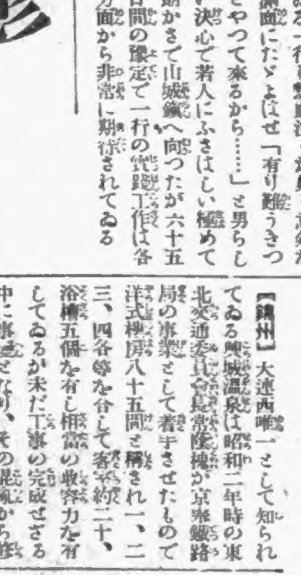 顔面にたゞよはせ「有り難うきつ
とやつて來るから……」と男らし
い決心で若人にふさはしい極めて
朗かさで山城鎭へ向つたが六十五
日間の豫定で一行の實踐工作は各
方面から非常に期待されてゐる
【錦州】大連西唯一として知られ
てゐる興城温泉は昭和二年時の東
北交通委員會長常蔭槐が京奉鐵路
局の事業として着手させたもので
洋式樓房八十五間と稱され一、二
三、四各等を合して客室約二十、
浴槽五個を有し相當の收容力を有
してゐるが未だ工事の完成せざる
中に事變となり、その混亂から